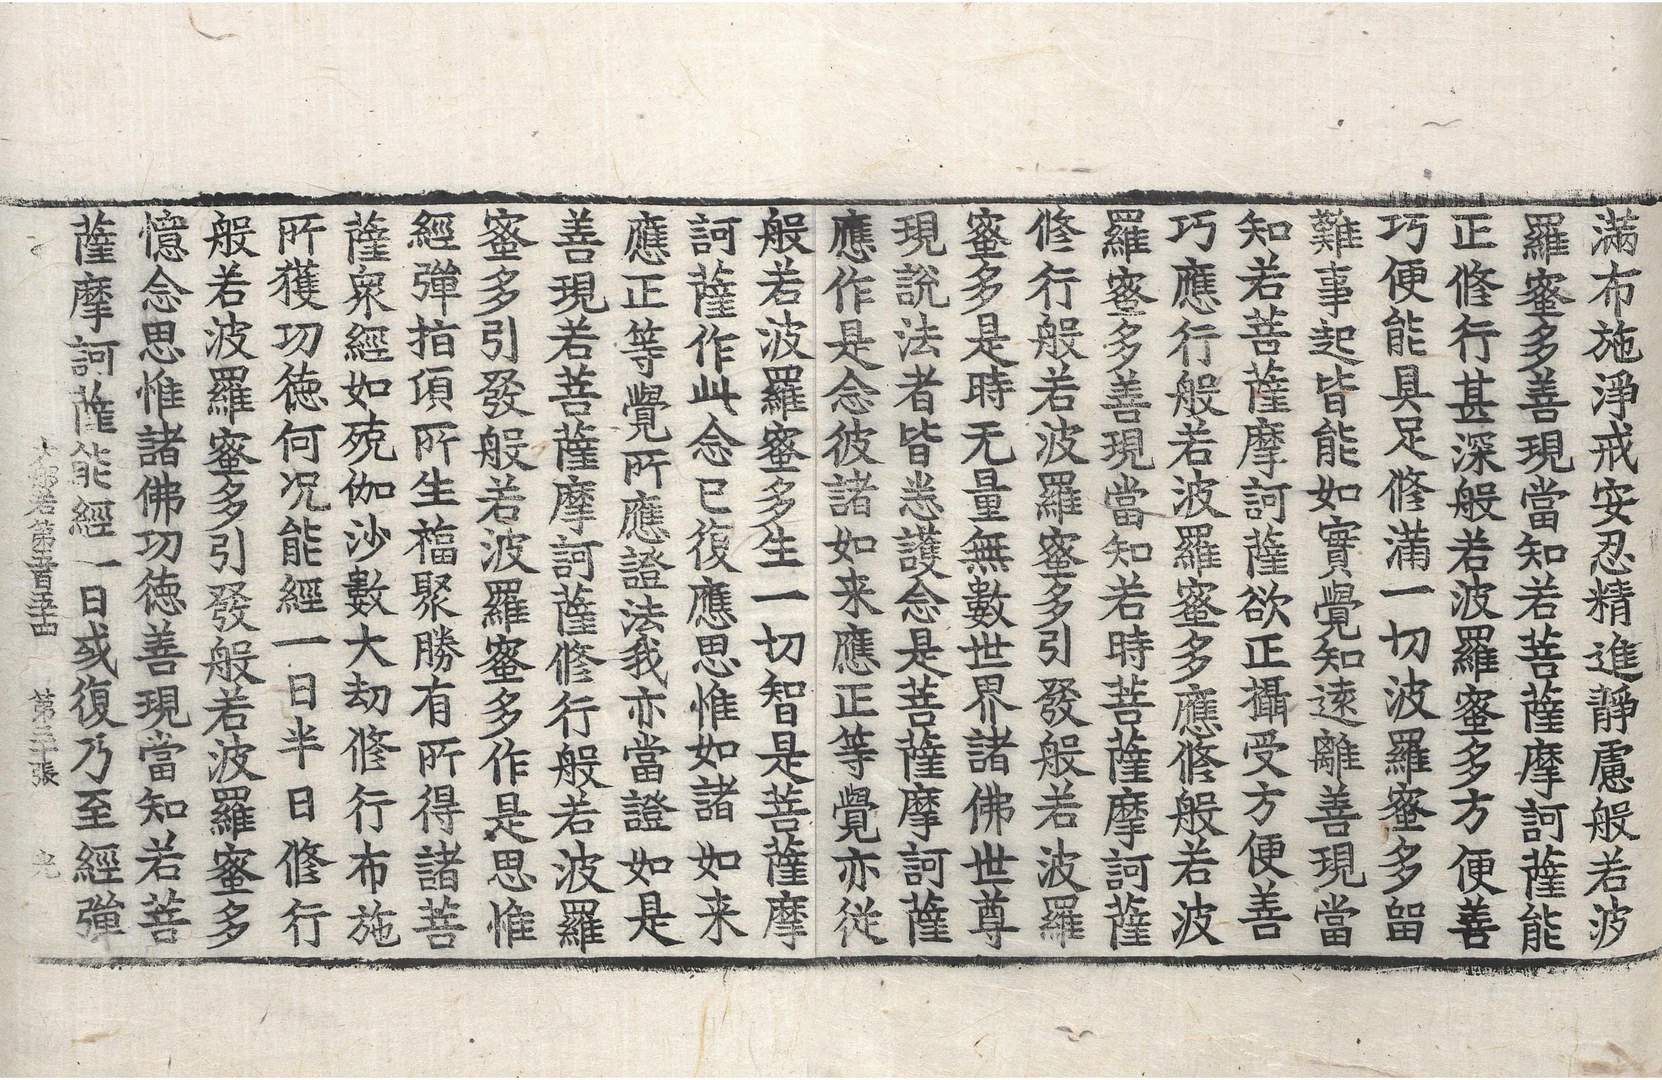 滿布施淨戒安忍精進靜慮般若波
羅蜜多善現當知若菩薩摩訶薩能
正修行甚深般若波羅蜜多方便善
巧便能具足修滿一切波羅蜜多留
難事起皆能如實覺知遠離善現當
知若菩薩摩訶薩欲正攝受方便善
巧應行般若波羅蜜多應修般若波
羅蜜多善現當知若時菩薩摩訶薩
修行般若波羅蜜多引發般若波羅
蜜多是時无量無數世界諸佛世尊
現說法者皆悉護念是菩薩摩訶薩
應作是念彼諸如来應正等覺亦従
般若波羅蜜多生一切智是菩薩摩
訶薩作此念已復應思惟如諸如来
應正等覺所應證法我亦當證如是
善現若菩薩摩訶薩修行般若波羅
蜜多引發般若波羅蜜多作是思惟
經彈指頃所生福聚勝有所得諸菩
薩衆經如殑伽沙數大劫修行布施
所獲功徳何况能經一日半日修行
般若波羅蜜多引發般若波羅蜜多
憶念思惟諸佛功徳善現當知若菩
薩摩訶薩能經一日或復乃至經彈
大般若第五百五十四 第二十張 光